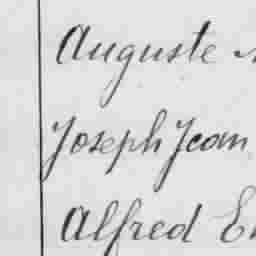 Auguste
Joseph Jean
Alfred